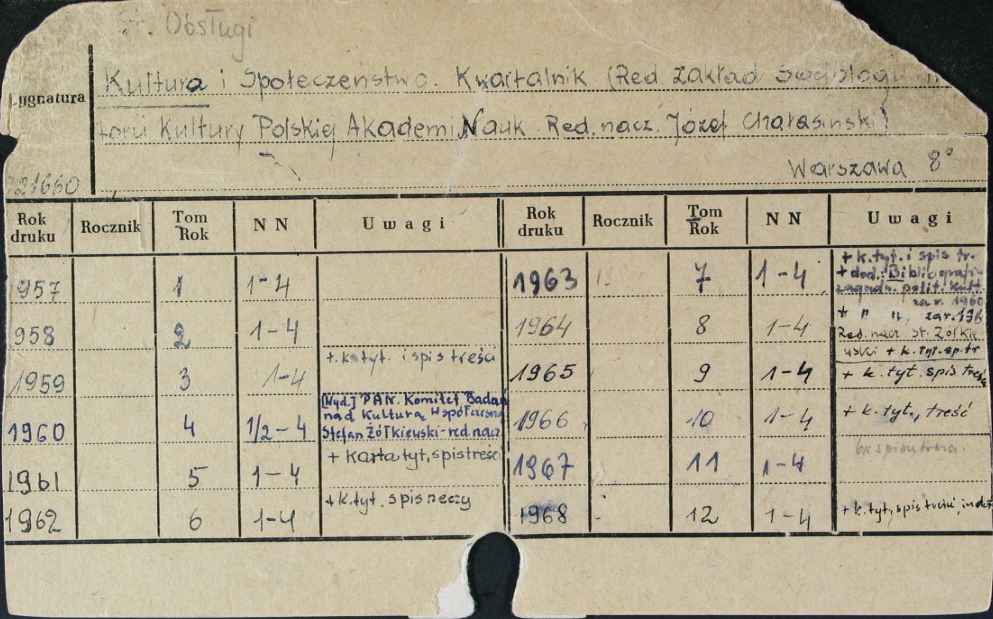 Obsługi
Kultura i Społeczeństwo. Kwartalnik (Red Zakład Socjolog
Sygnatura
torii Kultury Polskiej Akademi Nauk Red. nacz. Józef Chałasiński)
21660
Warszawa 8°
Rok druku Rocznik Tom Rok N N Uwagi Rok druku Rocznik Tom Rok N N Uwagi
1957 1 1-4
958 2 1-4
+ k. tyt. i spis treści
1959 3 1-4
[Wyd.] PAN. Komitet Badań
nad Kulturą Współczesną
1960 4 1/2-4 Stefan Żółkiewski - red nacz
+ karta tyt, spis treści
1961 5 1-4
+ k. tyt. spis rzeczy
1962 6 1-4
+ k. tyt. i spis tr.
+ dod. Bibliografia
1963 7 1-4 zagadn. polit. kult
za r. 1960
+ " " za r. 196
1964 8 1-4 Red. nacz. St. Żółkie
wski + k. tyt. sp. tr
1965 9 1-4 + k. tyt. spis treśc
1966 10 1-4 + k. tyt., treść
1967 11 1-4
1968 12 1-4 + k. tyt, spis treści, indeks